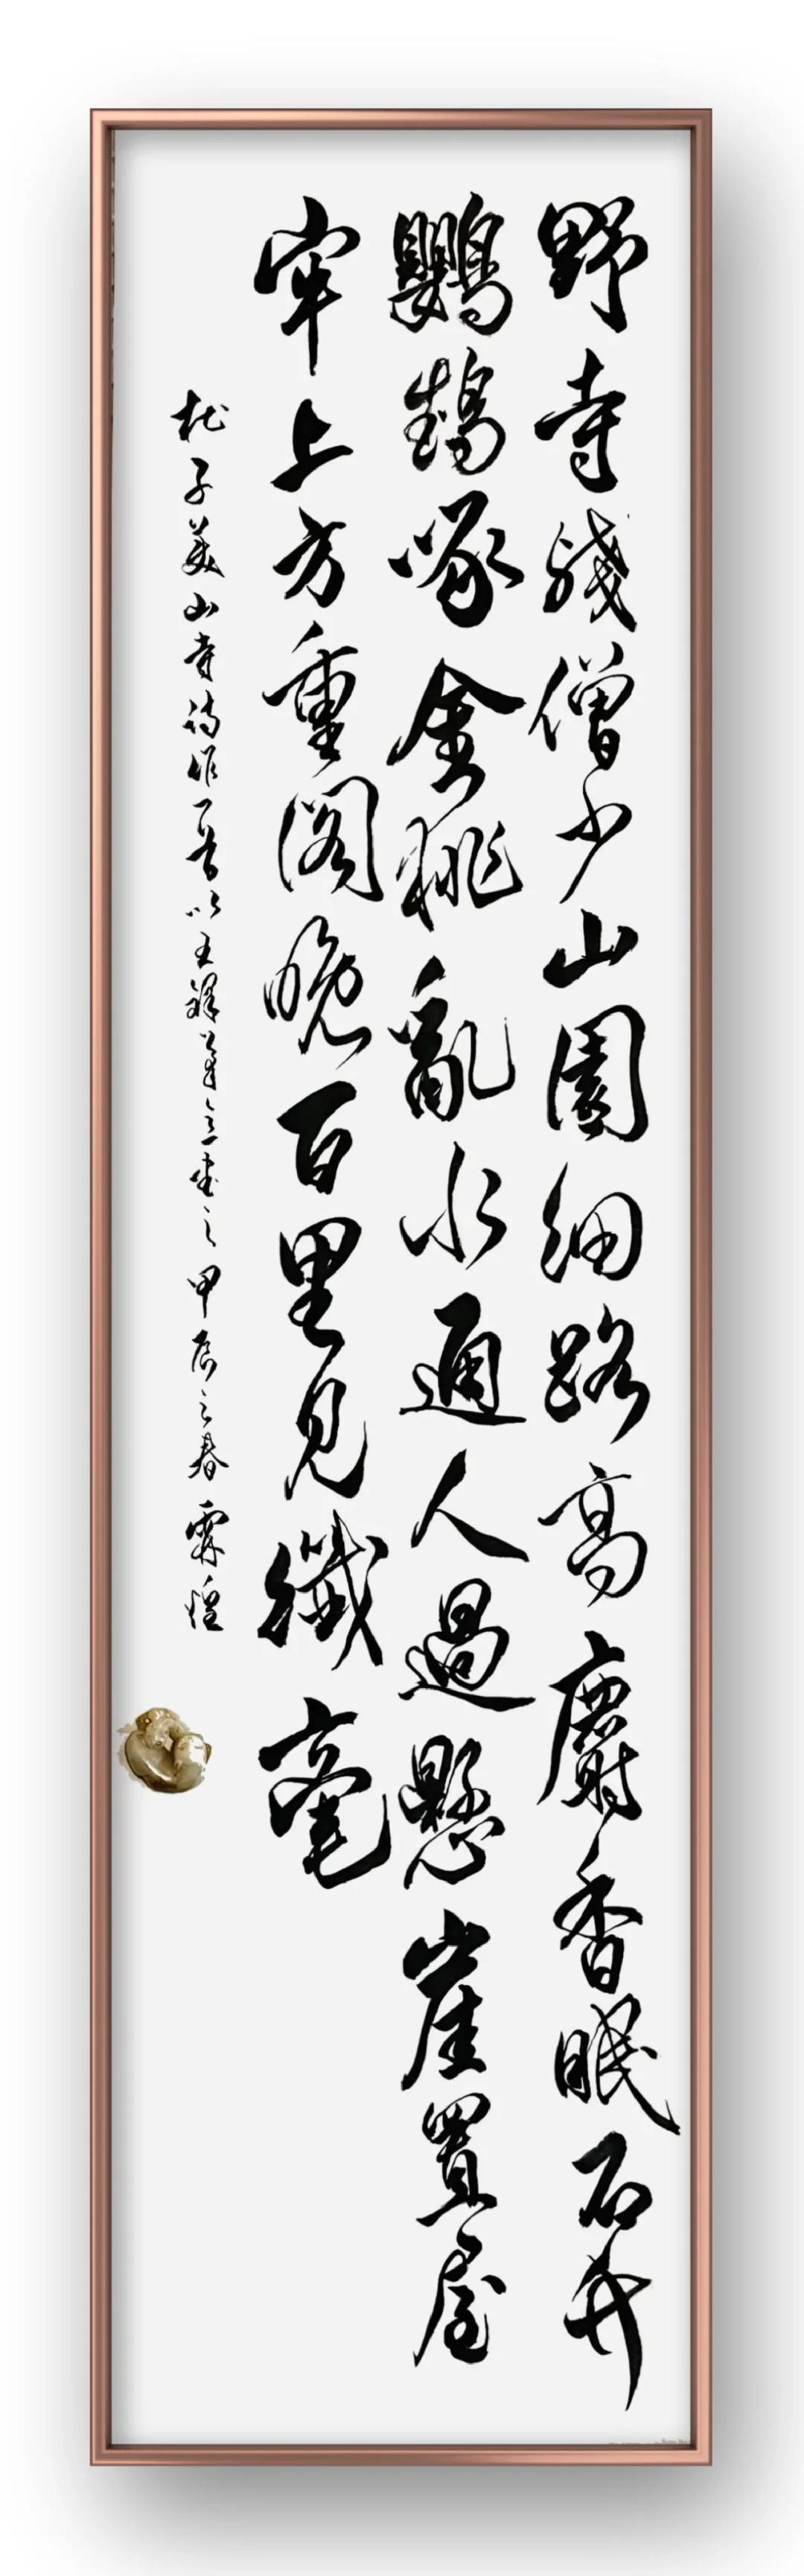 野寺殘僧少山園細路高麝香眠石竹
鸚鵡啄金桃亂水通人過懸崖置屋
牢上方重閣晚百里見纖毫
杜子美山寺詩作一首以王鐸筆意書之甲辰之春霖煌